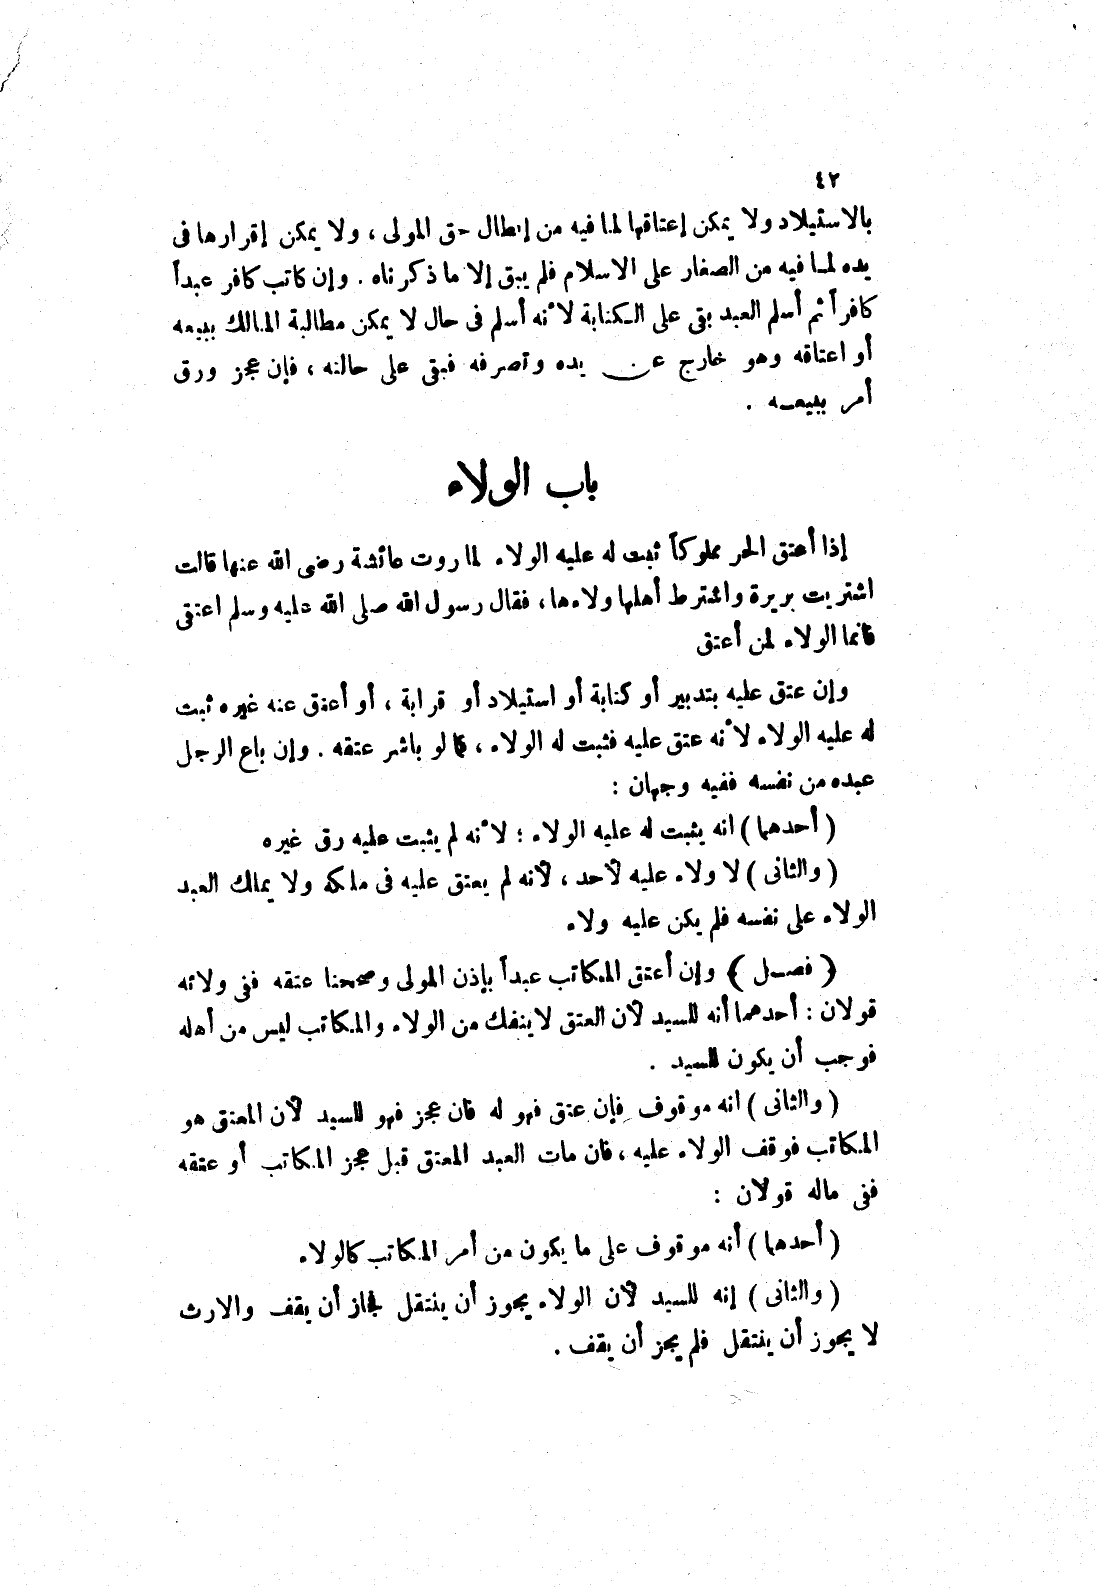 ٤٢
بالاستيلاد ولا يمكن إعتاقها لما فيه من إبطال حق المولى ، ولا يمكن إقرارها فى
يده لما فيه من الصغار على الاسلام فلم يبق إلا ما ذكرناه . وإن كاتب كافر عبداً
كافراً ثم أسلم العبد بقى على الكتابة لأنه أسلم فى حال لا يمكن مطالبة المالك ببيعه
أو اعتاقه وهو خارج عن يده وتصرفه فبقى على حالته ، فإن عجز ورق
أمر ببيعه .
باب الولاء
إذا أعتق الحر مملوكاً ثبت له عليه الولاء لما روت عائشة رضى الله عنها قالت
اشتريت بريرة واشترط أهلها ولاءها ، فقال رسول الله صلى الله عليه وسلم اعتقى
فانما الولاء لمن أعتق
وإن عتق عليه بتدبير أو كتابة أو استيلاد أو قرابة ، أو أعتق عنه غيره ثبت
له عليه الولاء لأنه عتق عليه فثبت له الولاء ، كما لو باشر عتقه . وإن باع الرجل
عبده من نفسه ففيه وجهان :
( أحدهما ) انه يثبت له عليه الولاء ؛ لأنه لم يثبت عليه رق غيره
( والثانى ) لا ولاء عليه لأحد ، لأنه لم يعتق عليه فى ملكه ولا يملك العبد
الولاء على نفسه فلم يكن عليه ولاء
( فصل ) وإن أعتق المكاتب عبداً بإذن المولى وصححنا عتقه ففى ولائه
قولان : أحدهما أنه للسيد لأن العتق لا ينفك من الولاء والمكاتب ليس من أهله
فوجب أن يكون للسيد .
( والثانى ) انه موقوف فإن عتق فهو له فان عجز فهو للسيد لأن المعتق هو
المكاتب فوقف الولاء عليه ، فان مات العبد المعتق قبل عجز المكاتب أو عتقه
ففى ماله قولان :
( أحدهما ) أنه موقوف على ما يكون من أمر المكاتب كالولاء
( والثانى ) إنه للسيد لأن الولاء يجوز أن ينتقل فجاز أن يقف والارث
لا يجوز أن ينتقل فلم يجز أن يقف .